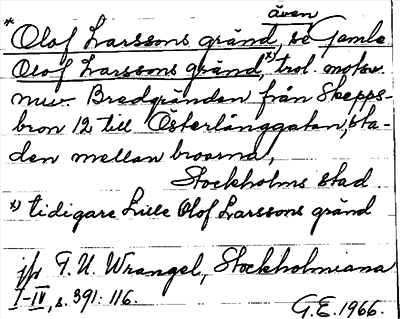 även
* Olof Larssons gränd, se Gamle
Olof Larssons gränd,*) trol. motsv.
nuv. Bredgränden från Skepps-
bron 12 till Österlånggatan, sta-
den mellan broarna,
Stockholms stad.
*) tidigare Lille Olof Larssons gränd
jfr F. U. Wrangel, Stockholmiana
I-IV, s. 391: 116.
G.E. 1966.